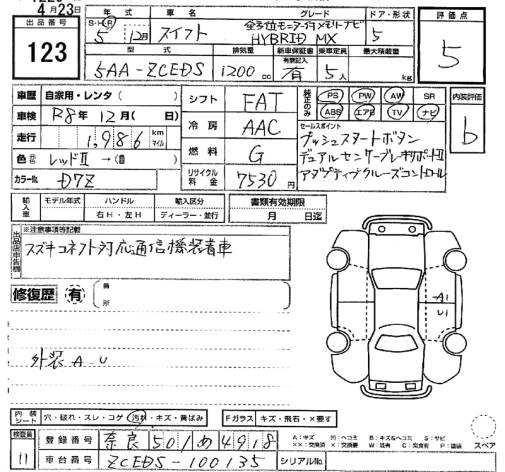 4月23日
出品番号
123
年式
S・H・R 5 12月
車名
スイフト
グレード
全方位モニター付メモリナビ
HYBRID MX
ドア・形状
5
評価点
5
型式
5AA-ZCEDS
排気量
1200 cc
新車保証書
有無記入
有
乗車定員
5人
最大積載量
kg
車歴 自家用・レンタ( )
車検 R8年12月( 日)
走行 1,986 km マイル
色 レッドⅡ→( )
カラーNo. D7Z
シフト FAT
冷房 AAC
燃料 G
リサイクル料金 7530円
純正のみ
PS PW AW SR
ABS エアB TV ナビ
セールスポイント
プッシュスタートボタン
デュアルセンサーブレーキサポートⅡ
アダプティブクルーズコントロール
内装評価
b
輸入車
モデル年式 年
ハンドル 右H・左H
輸入区分 ディーラー・並行
書類有効期限
月 日迄
出品店申告欄
※注意事項等記載
スズキコネクト対応通信機装着車
修復歴 有
箇所
外装 A-U
A1
U1
内装シート 穴・破れ・スレ・コゲ 汚れ・キズ・黄ばみ
Fガラス キズ・飛石・×要す
検査員
11
登録番号 奈良 501 め 4918
車台番号 ZCEDS-100135
シリアルNo.
A:キズ U:ヘコミ B:キズ&ヘコミ S:サビ
スペア